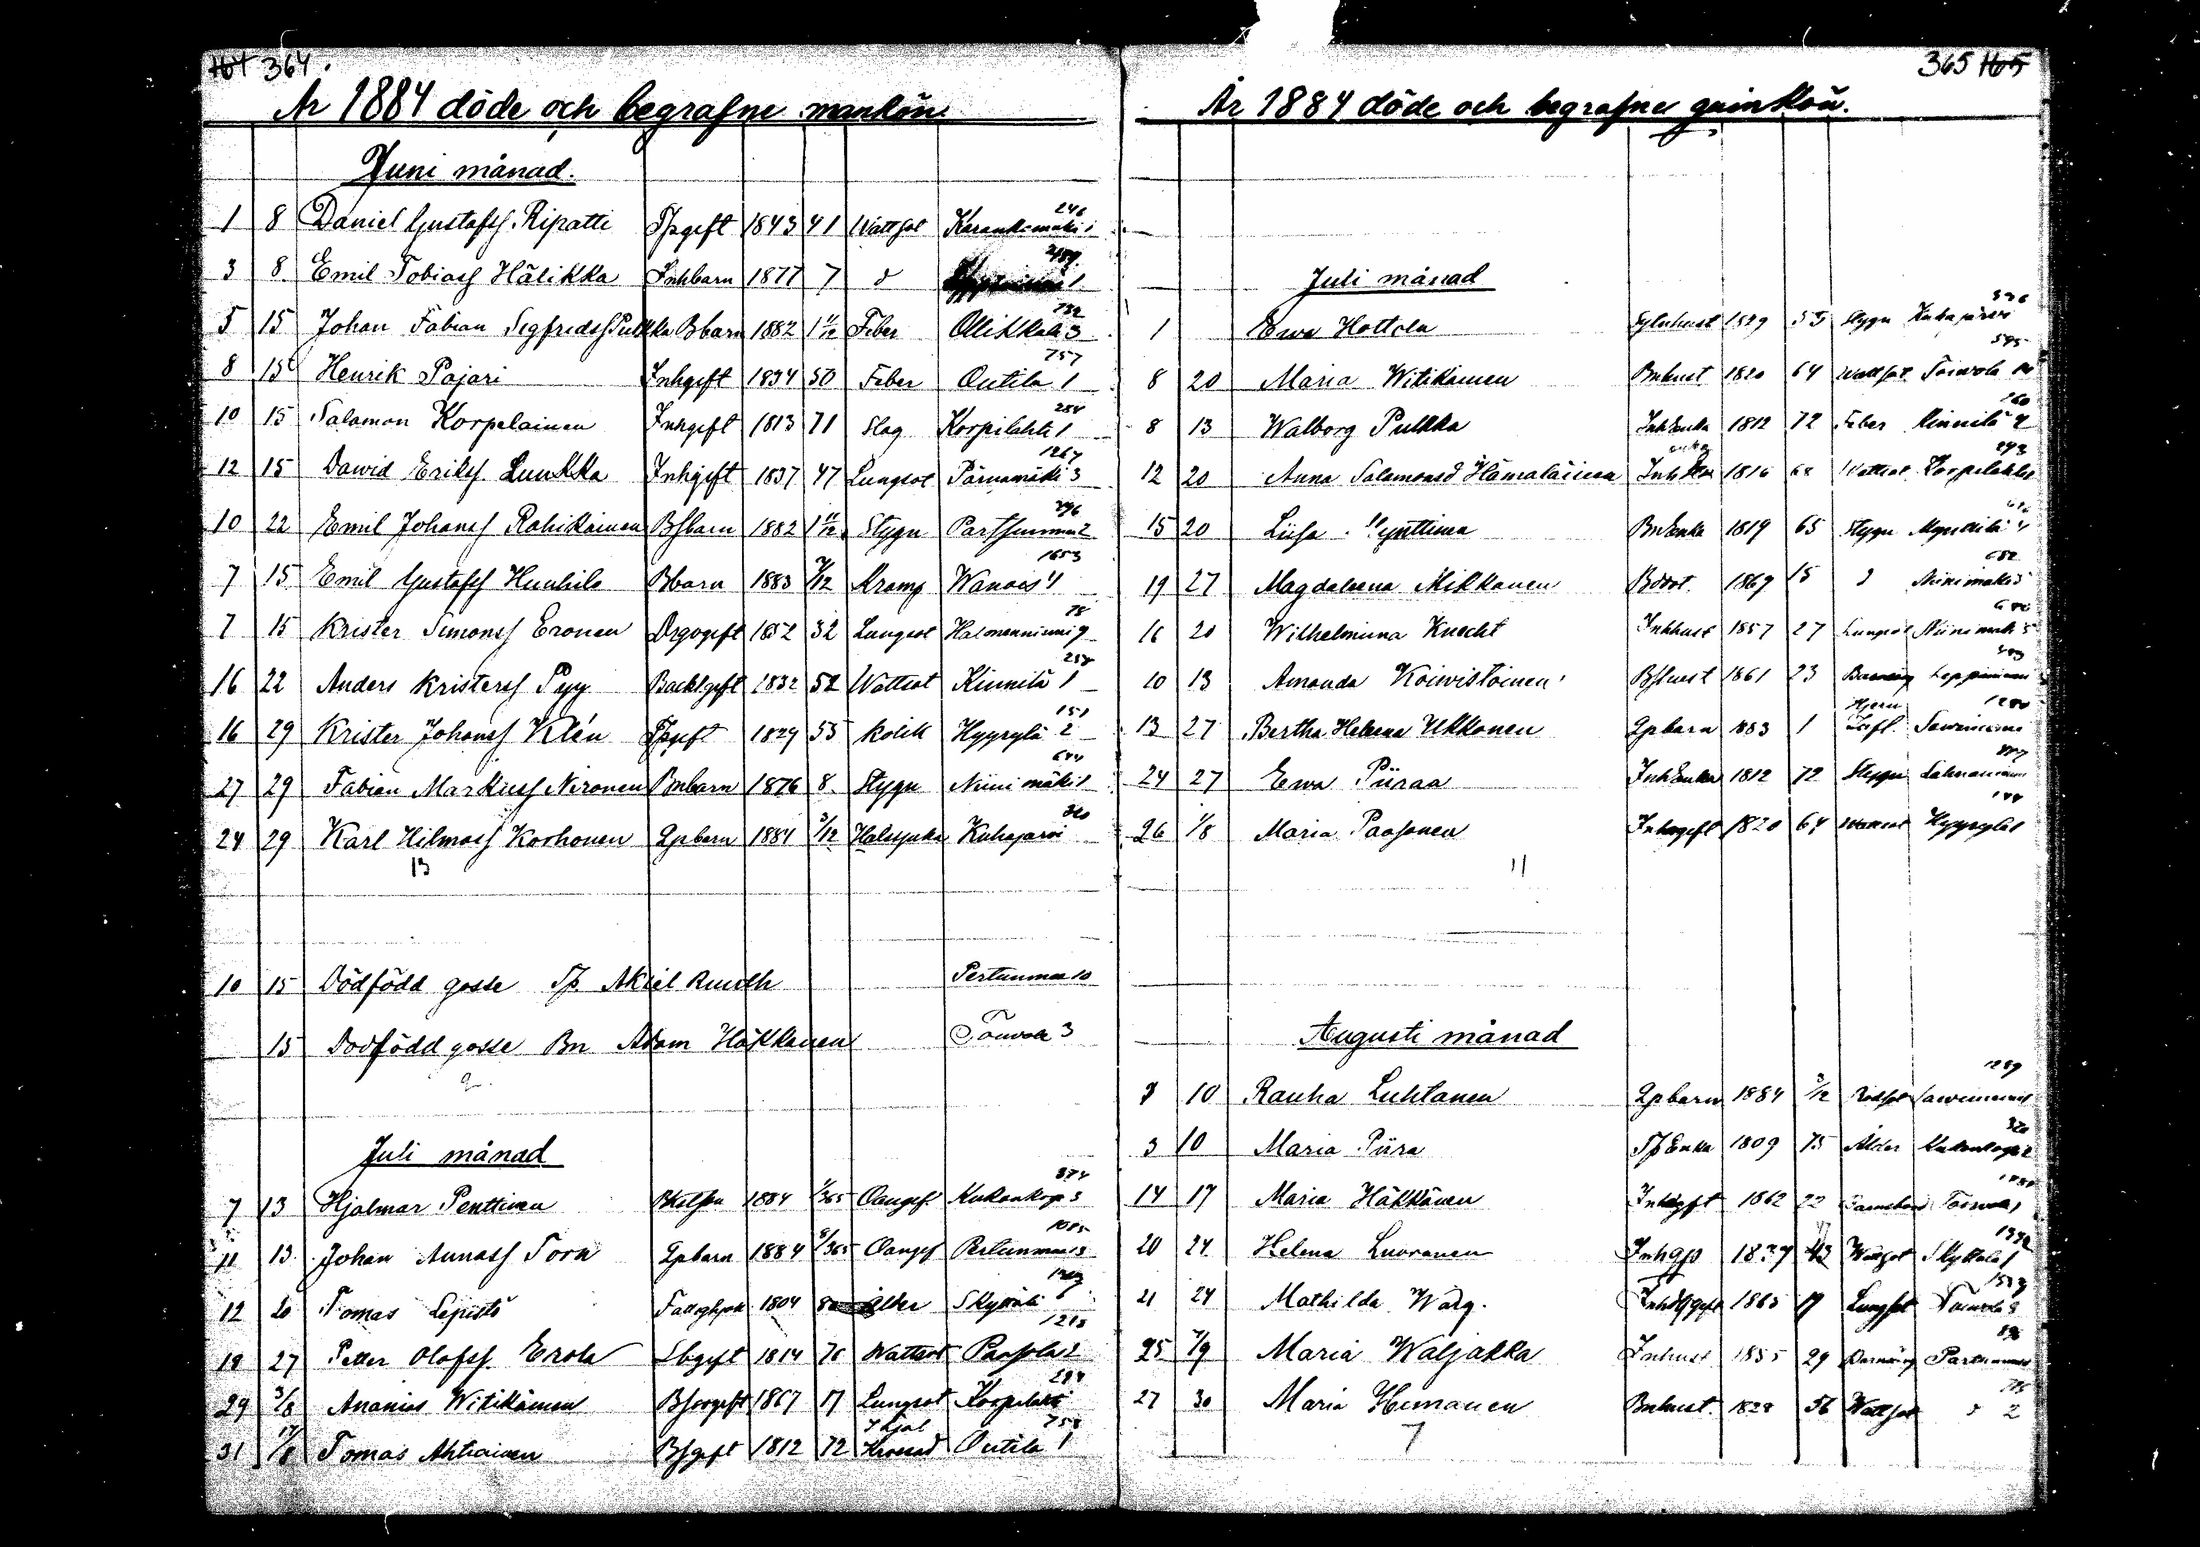 364.
År 1884 döde och begrafne mankön.
Juni månad.
246
1 8 Daniel Gustafss. Ripatti Tpgift 1843 41 Wattsot Karankamäki 1
3 8 Emil Tobiass Hälikka Inhbarn 1877 7 d 1
732
5 15 Johan Fabian Segfredss Pulkka Bbarn 1882 1 11/12 Feber Ollikkala 3
757
8 15 Henrik Pajari Inhgift 1834 50 Feber Outila 1
284
10 15 Salomon Korpelainen Inhgift 1813 71 Slag Korpilahti 1
1267
12 15 Dawid Erikss. Luukka Inhgift 1837 47 Lungsot Pärnamäki 3
796
10 22 Emil Johanss Rahikainen Bsbarn 1882 1 11/12 Stygn 2
1653
7 15 Emil Gustafss Huuhilo Bbarn 1883 /12 Kramp Wanois 4
78
7 15 Krister Simonss Eronen Drgogift 1852 32 Lungsot Halmenniemi 9
258
16 22 Anders Kristerss Pyy Backsgift 1832 52 Wattsot Kinnilä 1
151
16 29 Krister Johanss Klén Tpgift 1829 55 Kolik Hyyrylä 2
644
27 29 Fabian Markuss Nironen Bnbarn 1876 8 Stygn Niinimäki 1
320
24 29 Karl Hilmars Korhonen Gpbarn 1884 /12 Halssjuka Kuhajärvi
13
10 15 Dödfödd gosse Tp. Aksel Ruuth Pertunmaa 10
15 Dödfödd gosse Bn Adam Häkkänen Toiwola 3
2
Juli månad
874
7 13 Hjalmar Penttinen 1884 1/365 Oangif. Kukonkorp 3
11 13 Johan Aunass Torn Gpbarn 1884 /365 Oangif Pertunmaa 3
12 20 Tomas Lepistö Fattighjon 1804 80 Ålder Skyttälä
18 27 Petter Olofss. Erola Lbgift 1814 70 Wattsot Paasola 2
284
29 3/8 Ananias Witikäinen 1867 17 Lungsot Korpilahti
758
31 /8 Tomas Ahtiainen Bsgift 1812 72 Outila 1
365
År 1884 döde och begrafne quinkön.
Juli månad
1 Ewa Hottola 1829 55 Stygn Kuhajärvi
8 20 Maria Witikäinen Bnhust 1820 64 Wattsot Toiwola 10
8 13 Walborg Pulkka Inhenka 1812 72 Feber Kinnilä
12 20 Anna Salomonsd Hämäläinen Inh 1816 68 Wattsot Korpilahti
15 20 Liisa Pynttinen Bnenka 1819 65 Stygn
19 27 Magdaleena Mikkonen Bdot. 1869 15 d Niinimäki 5
16 20 Wilhelmina Knecht Inhhust 1857 27 Lungsot Niinimäki 5
10 13 Amanda Koiwistoinen Bshust 1861 23 Barnsäng Leppäniemi
13 27 Bertha Helena Ukkonen Gpbarn 1883 1 Hjern Infl. Sawiniemi
24 27 Ewa Piiraa Inhenka 1812 72 Stygn Lahnaniemi
26 1/8 Maria Paasonen Inhagift 1820 64 Wattsot Hyyrylä
11
Augusti månad
1289
3 10 Rauha Luhtanen Gpbarn 1884 3/12 Rödsot Sawiniemi
320
3 10 Maria Piira Tpenka 1809 75 Ålder Kukonkorpi 2
14 17 Maria Häkkänen Inhagift 1862 22 Toiwola 1
1332
20 24 Helena Luoranen Inhgft 43 Wattsot Skyttälä 1
21 24 Mathilda Warg. 1865 19 Lungsot Toiwola 8
25 7/9 Maria Waljakka Inhust 1855 29 Barnsäng Partsumaa
27 30 Maria Himanen Bnhust. 1828 56 Wattsot d 2
7